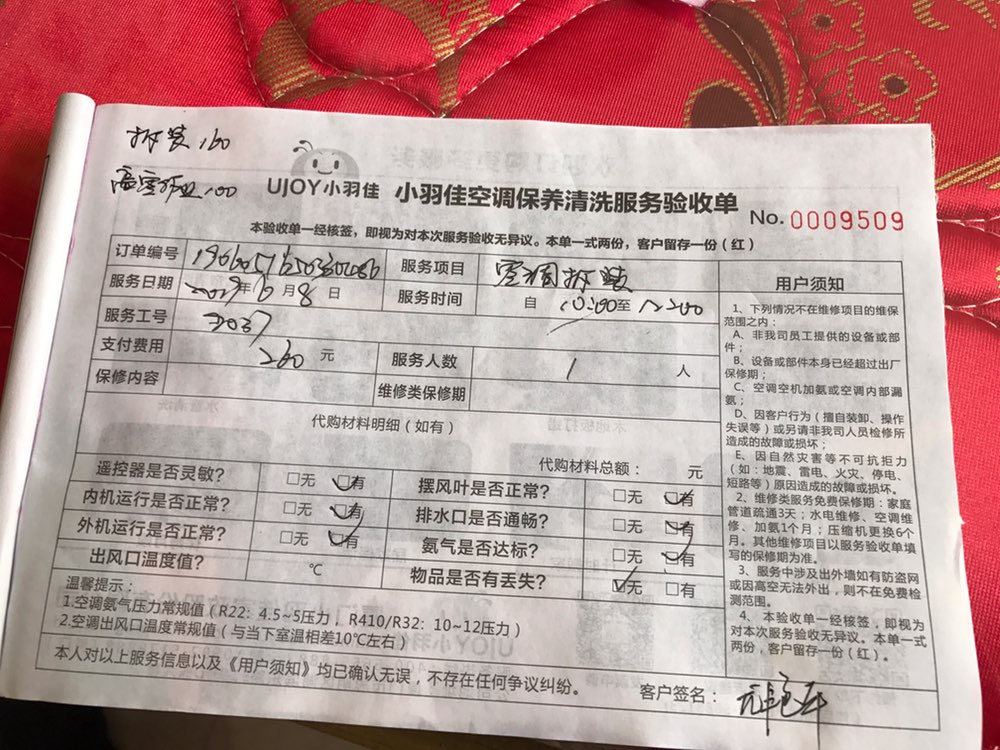 拆装160
高空作业100
UJOY小羽佳 小羽佳空调保养清洗服务验收单 No. 0009509
本验收单一经核签，即视为对本次服务验收无异议。本单一式两份，客户留存一份（红）
订单编号 服务项目 空调拆装
服务日期 年6月8日 服务时间 自10:00至12:00
服务工号 3037
支付费用 260元 服务人数 1人
保修内容 维修类保修期
代购材料明细（如有）
代购材料总额： 元
遥控器是否灵敏? □无 □有 摆风叶是否正常? □无 □有
内机运行是否正常? □无 □有 排水口是否通畅? □无 □有
外机运行是否正常? □无 □有 氨气是否达标? □无 □有
出风口温度值? ℃ 物品是否有丢失? □无 □有
温馨提示：
1.空调氨气压力常规值（R22: 4.5~5压力， R410/R32: 10~12压力）
2.空调出风口温度常规值（与当下室温相差10℃左右）
本人对以上服务信息以及《用户须知》均已确认无误，不存在任何争议纠纷。
客户签名：
用户须知
1、下列情况不在维修项目的维保
范围之内：
A、非我司员工提供的设备或部
件；
B、设备或部件本身已经超过出厂
保修期；
C、空调空机加氨或空调内部漏
氨；
D、因客户行为（擅自装卸、操作
失误等）或另请非我司人员检修所
造成的故障或损坏；
E、因自然灾害等不可抗拒力
（如：地震、雷电、火灾、停电、
短路等）原因造成的故障或损坏。
2、维修类服务免费保修期：家庭
管道疏通3天；水电维修、空调维
修、加氨1个月；压缩机更换6个
月。其他维修项目以服务验收单填
写的保修期为准。
3、服务中涉及出外墙如有防盗网
或因高空无法外出，则不在免费检
测范围。
4、本验收单一经核签，即视为
对本次服务验收无异议。本单一式
两份，客户留存一份（红）。